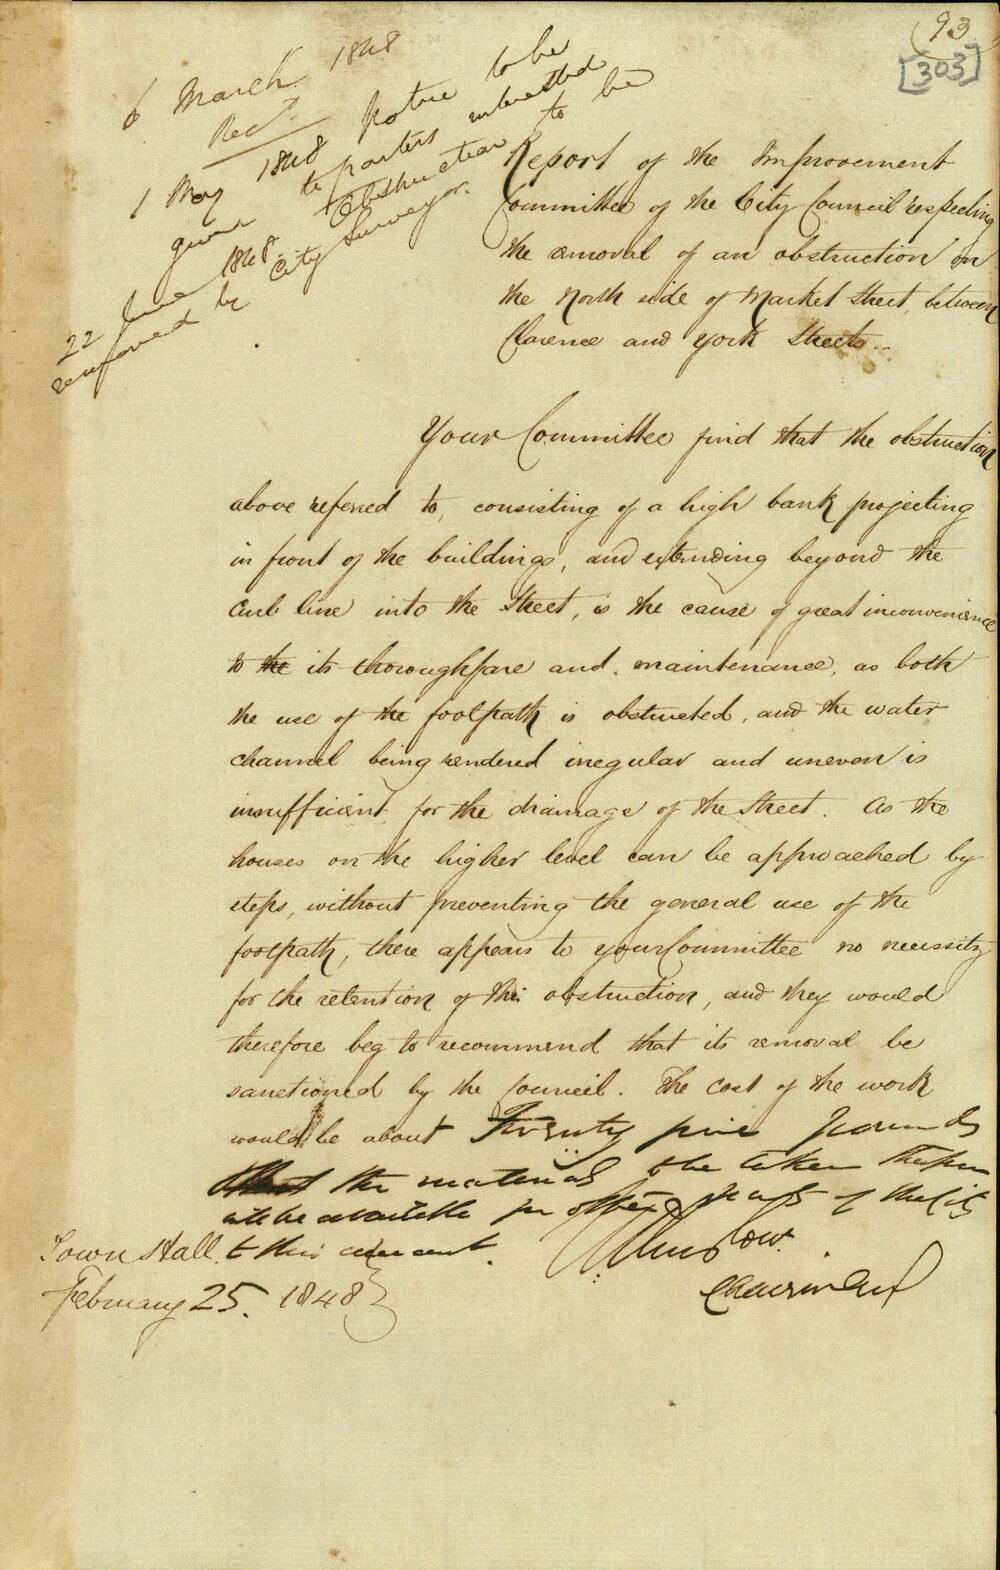 (93
[303]
6 March 1848
Recd.
1 May 1848 Notice to be
given to parties interested
22 June 1848 Obstruction to be
removed by City Surveyor.
Report of the Improvement
Committee of the City Council respecting
the removal of an obstruction on
the North side of Market Street, between
Clarence and York Streets.
Your Committee find that the obstruction
above referred to, consisting of a high bank projecting
in front of the buildings, and extending beyond the
Curb line into the Street, is the cause of great inconvenience
to the its thoroughfare and maintenance, as both
the use of the footpath is obstructed, and the water
channel being rendered irregular and uneven is
insufficient for the drainage of the Street. As the
houses on the higher level can be approached by
steps, without preventing the general use of the
footpath, there appears to your Committee no necessity
for the retention of this obstruction, and they would
therefore beg to recommend that its removal be
sanctioned by the Council. The cost of the work
would be about Twenty five Pounds
the material to be taken
will be available for other parts of the City
to this amount.
Chairman
Town Hall
February 25. 1848